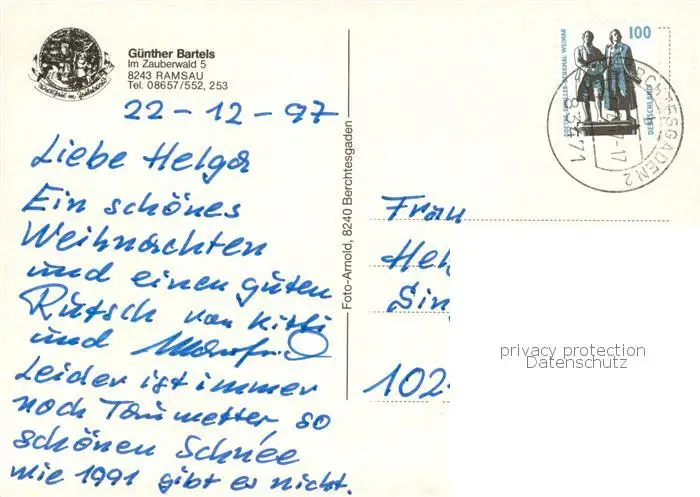 Günther Bartels
Im Zauberwald 5
8243 RAMSAU
Tel. 08657/552, 253
22-12-97
Liebe Helga
Ein schönes
Weihnachten
und einen guten
Rutsch von Kitti
und
Leider ist immer
noch Tauwetter so
schönen Schnee
wie 1991 gibt es nicht.
Foto-Arnold, 8240 Berchtesgaden
100
GOETHE-SCHILLER-DENKMAL WEIMAR
DEUTSCHLAND
BERCHTESGADEN 2
83471
-17
Frau
Hel
Sin
102
privacy protection
Datenschutz